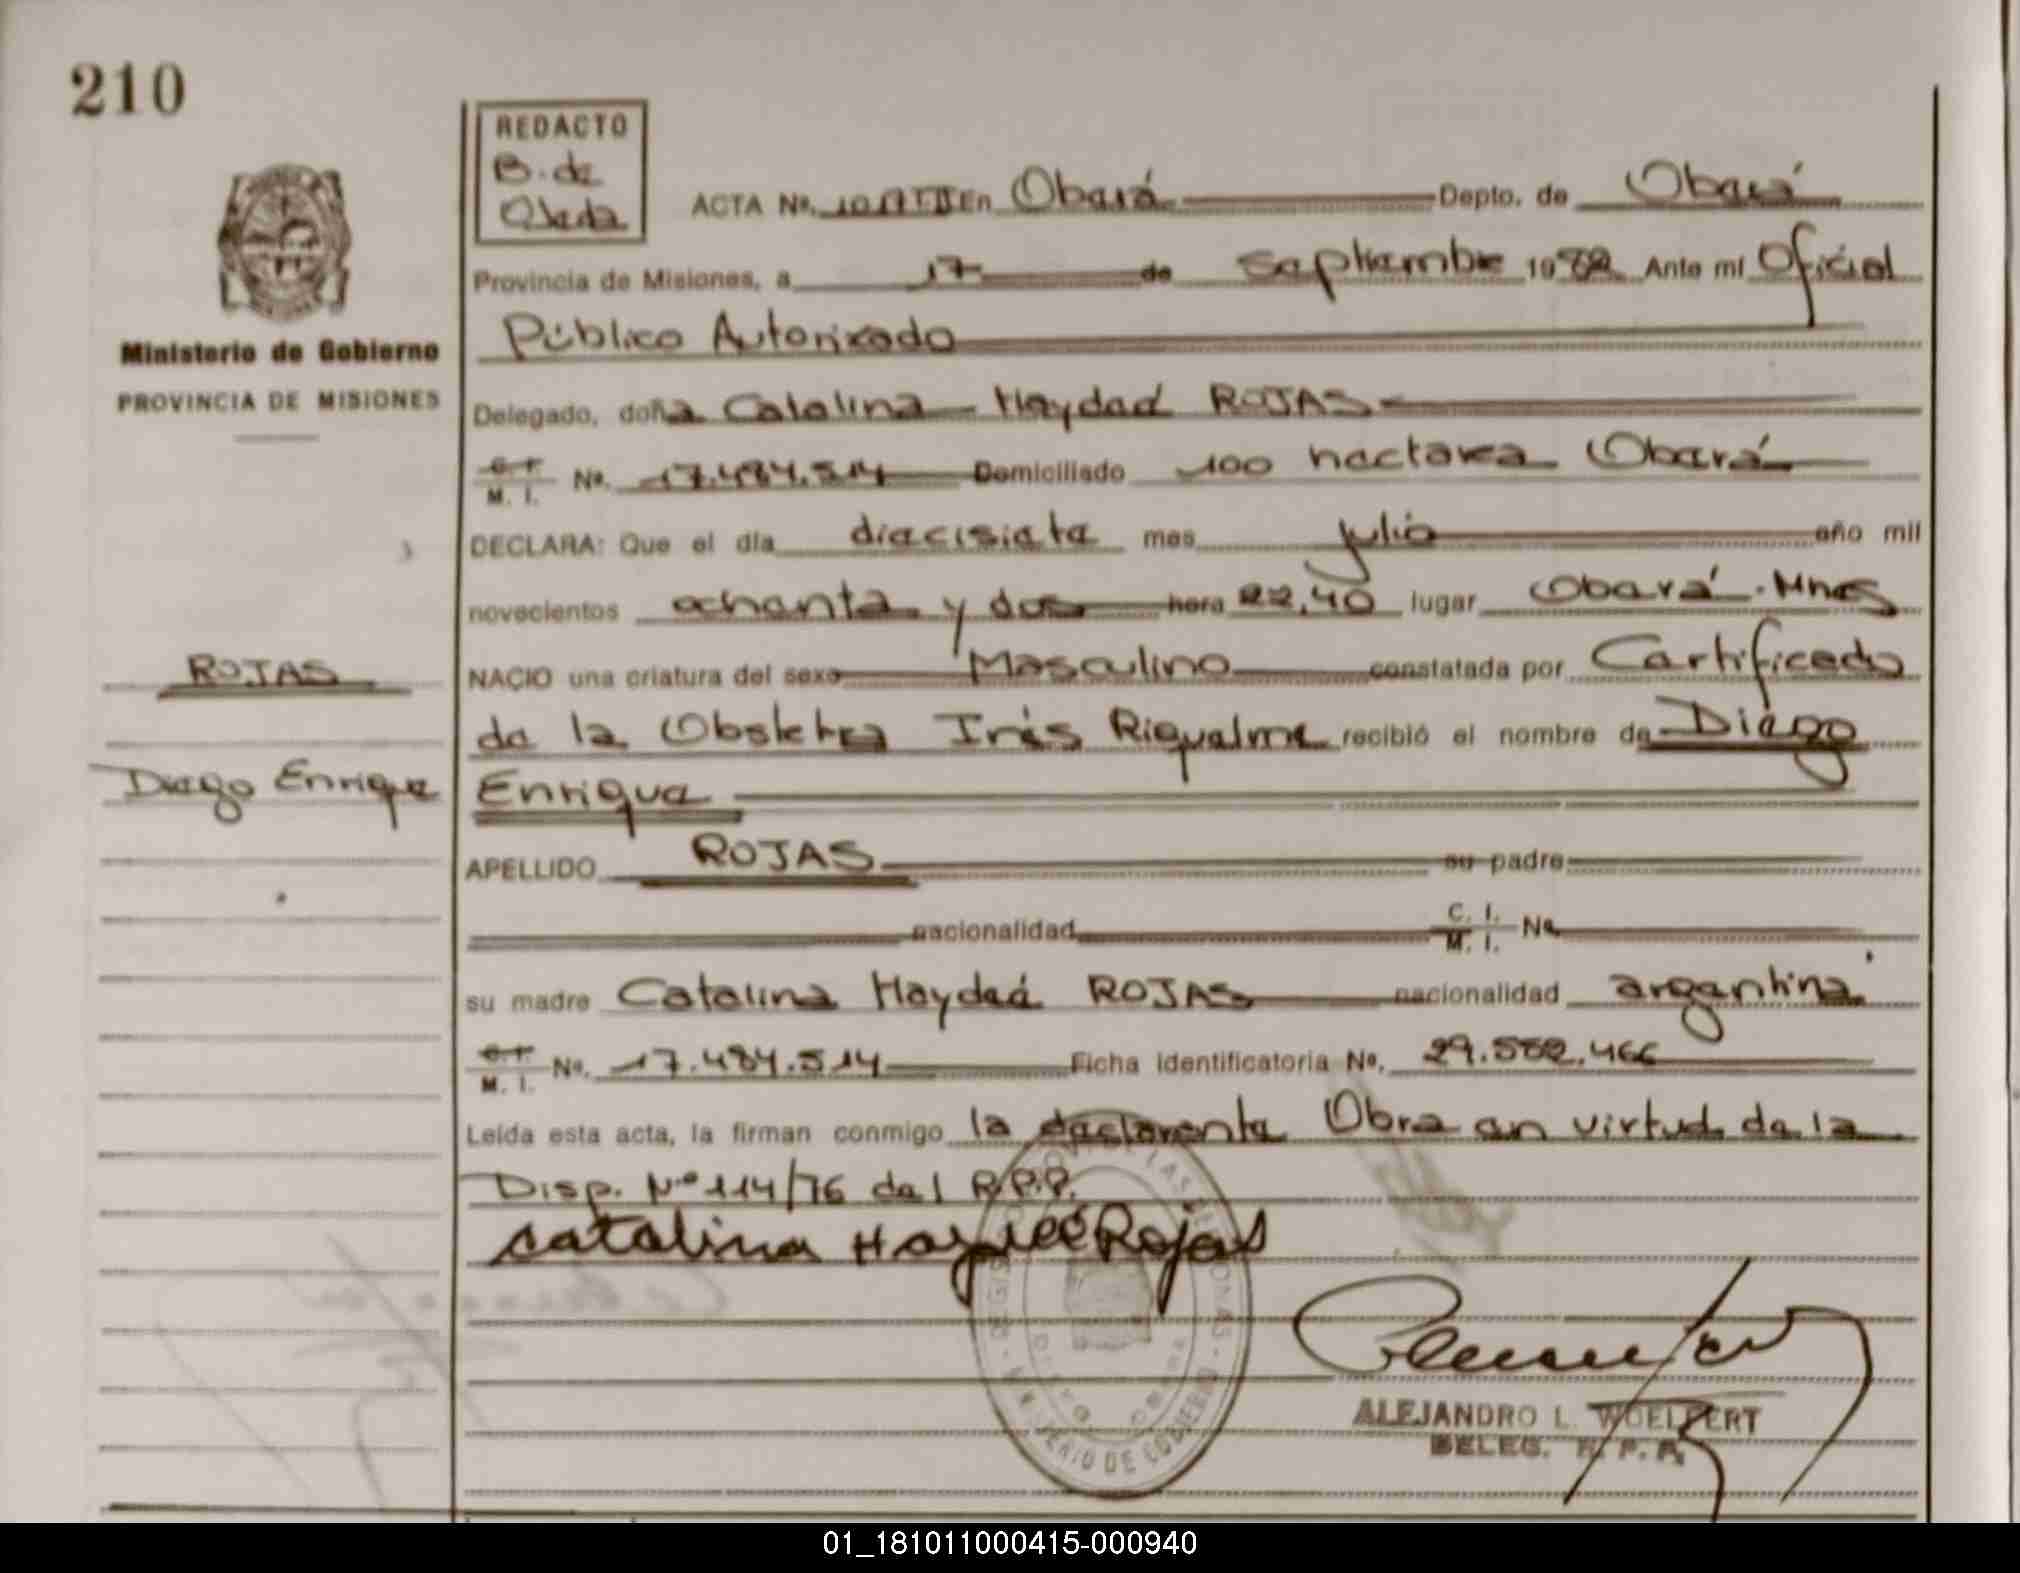 210
REDACTO
B. de
Ojeda
ACTA No. En Oberá Depto. de Oberá
Provincia de Misiones, a 17 de Septiembre 1982 Ante mí Oficial
Público Autorizado
Ministerio de Gobierno
PROVINCIA DE MISIONES
Delegado, doña Catalina Haydeé ROJAS
C. I. / M. I. No. 17.484.514 Domiciliado 100 hectarea Oberá
DECLARA: Que el día diecisiete mes julio año mil
novecientos ochenta y dos hora 22,40 lugar Oberá. Mnes
ROJAS
NACIO una criatura del sexo Masculino constatada por Certificado
de la Obstetra Inés Riquelme recibió el nombre de Diego
Diego Enrique
Enrique
APELLIDO ROJAS su padre
nacionalidad C. I. / M. I. No
su madre Catalina Haydeé ROJAS nacionalidad argentina
C. I. / M. I. No. 17.484.514 Ficha Identificatoria No. 29.582.466
Leída esta acta, la firman conmigo la declarante Obra en virtud de la
Disp. Nº 114/76 del R.P.P.
Catalina Haydeé Rojas
ALEJANDRO L. WOELFERT
DELEG. R. P. P.
MINISTERIO DE GOBIERNO
01_181011000415-000940